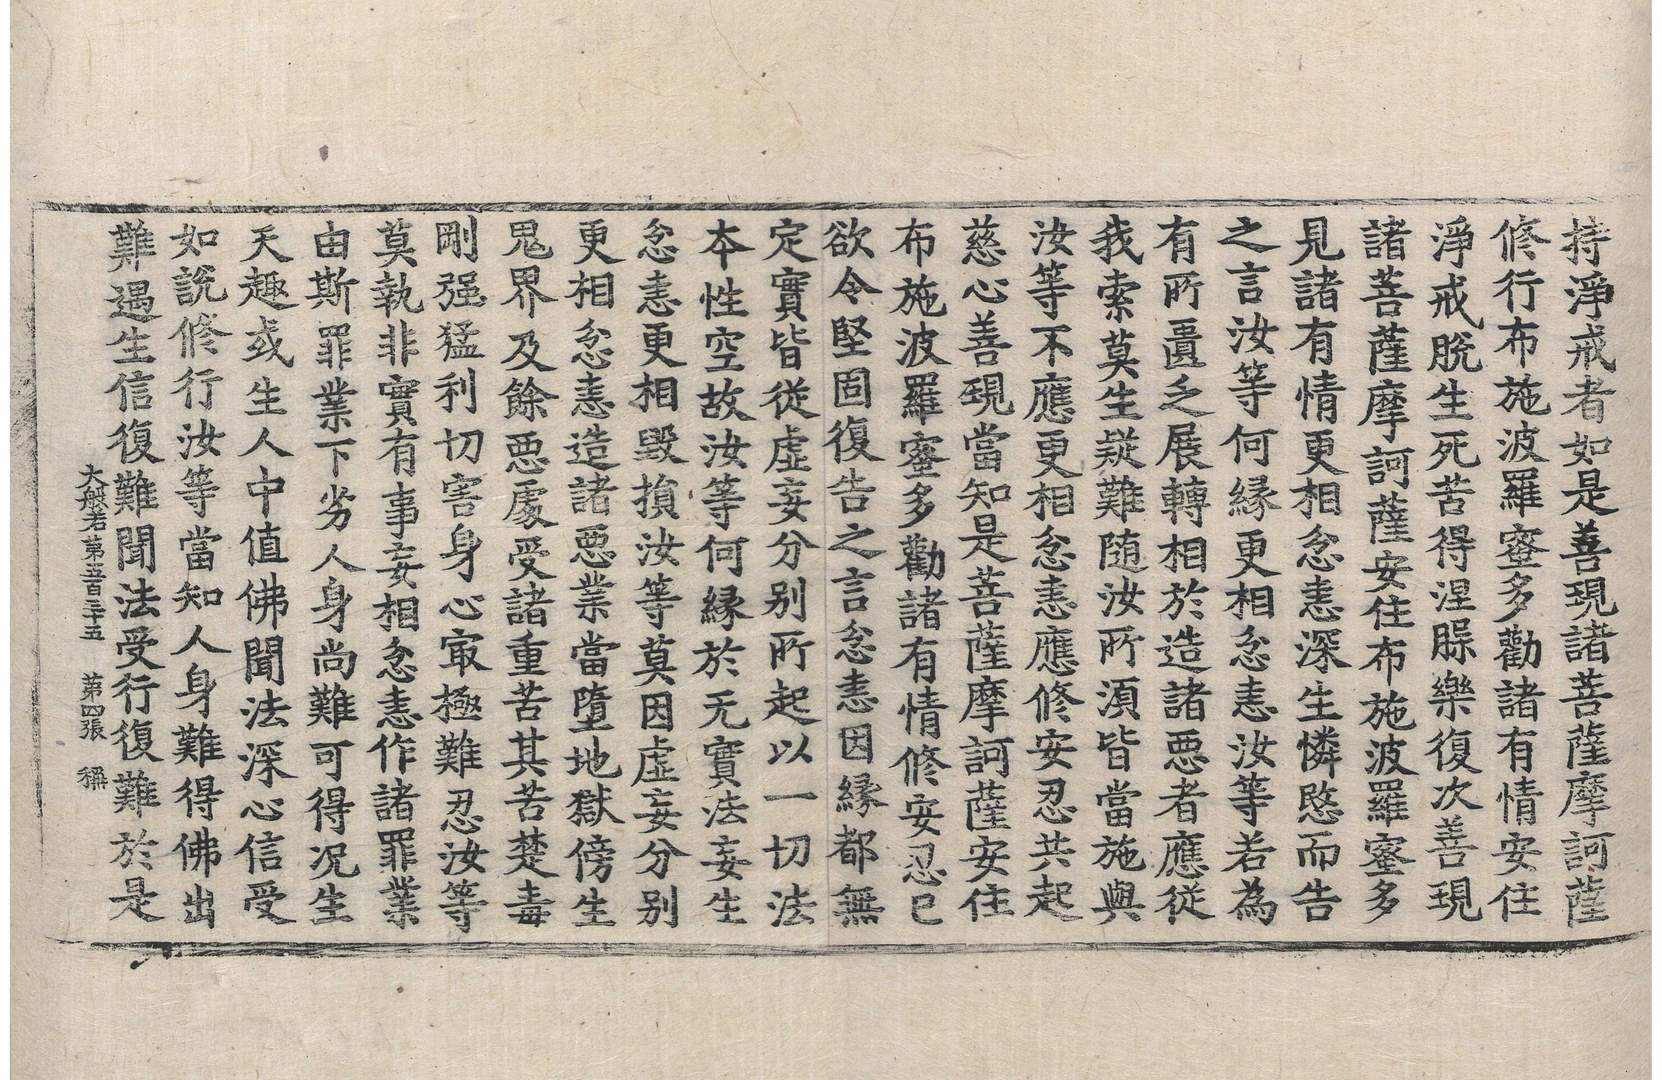 持淨戒者如是善現諸菩薩摩訶薩
修行布施波羅蜜多勸諸有情安住
淨戒脫生死苦得涅槃樂復次善現
諸菩薩摩訶薩安住布施波羅蜜多
見諸有情更相忿恚深生憐愍而告
之言汝等何緣更相忿恚汝等若為
有所匱乏展轉相於造諸惡者應從
我索莫生疑難隨汝所須皆當施與
汝等不應更相忿恚應修安忍共起
慈心善現當知是菩薩摩訶薩安住
布施波羅蜜多勸諸有情修安忍已
欲令堅固復告之言忿恚因緣都無
定實皆從虛妄分別所起以一切法
本性空故汝等何緣於无實法妄生
忿恚更相毀損汝等莫因虛妄分別
更相忿恚造諸惡業當墮地獄傍生
鬼界及餘惡處受諸重苦其苦楚毒
剛强猛利切害身心寂極難忍汝等
莫執非實有事妄相忿恚作諸罪業
由斯罪業下劣人身尚難可得况生
天趣或生人中值佛聞法深心信受
如說修行汝等當知人身難得佛出
難遇生信復難聞法受行復難於是
大般若第五百三十五 第四張